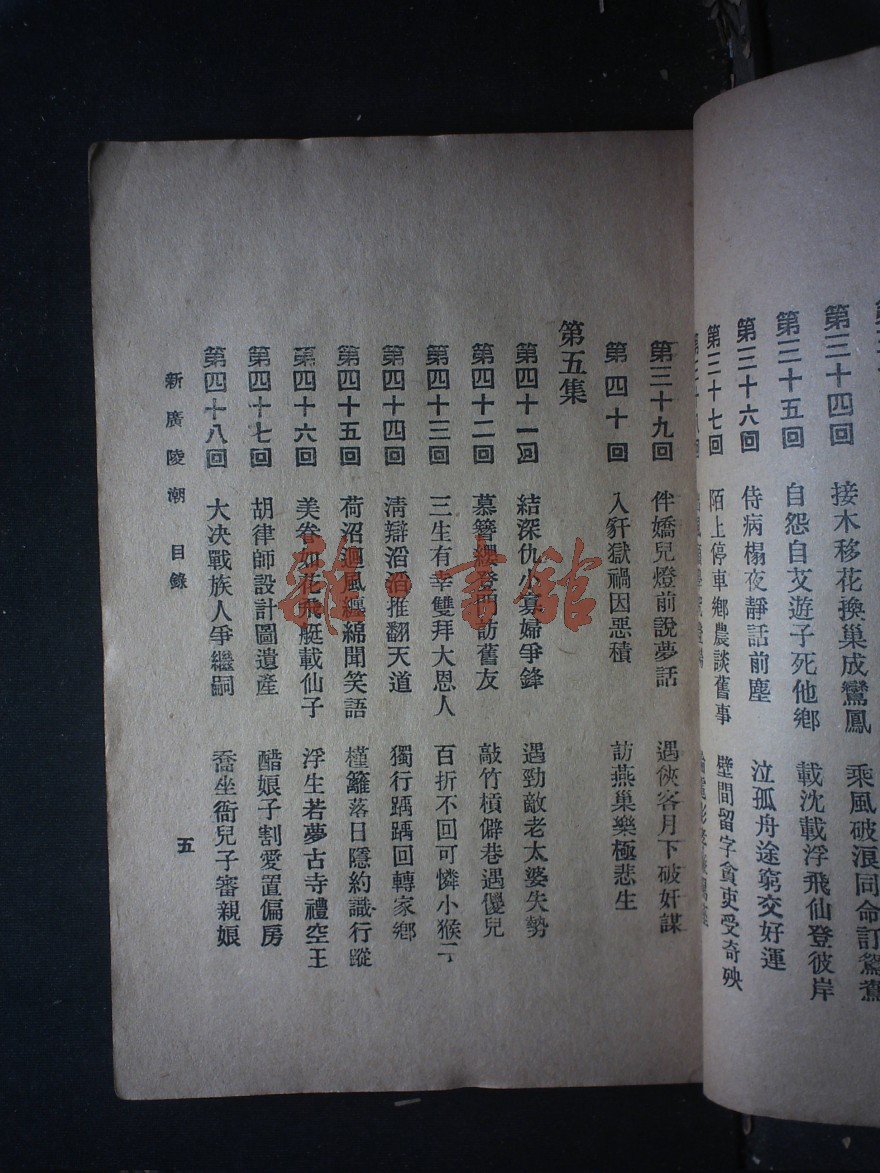 第三十四回 接木移花換巢成鸞鳳 乘風破浪同命訂鴛鴦
第三十五回 自怨自艾遊子死他鄉 載沈載浮飛仙登彼岸
第三十六回 侍病榻夜靜話前塵 泣孤舟途窮交好運
第三十七回 陌上停車鄉農談舊事 壁間留字貪吏受奇殃
第三十九回 伴嬌兒燈前說夢話 遇俠客月下破奸謀
第四十回 入豻獄禍因惡積 訪燕巢樂極悲生
第五集
第四十一回 結深仇小寡婦爭鋒 遇勁敵老太婆失勢
第四十二回 慕簪纓登門訪舊友 敲竹槓僻巷遇儍兒
第四十三回 三生有幸雙拜大恩人 百折不回可憐小猴子
第四十四回 清辯滔滔推翻天道 獨行踽踽回轉家鄉
第四十五回 荷沼迴風纏綿聞笑語 槿籬落日隱約識行蹤
第四十六回 美眷如花飛艇載仙子 浮生若夢古寺禮空王
第四十七回 胡律師設計圖遺產 醋娘子割愛置偏房
第四十八回 大決戰族人爭繼嗣 喬坐衙兒子審親娘
新廣陵潮 目錄
五
雜·書館